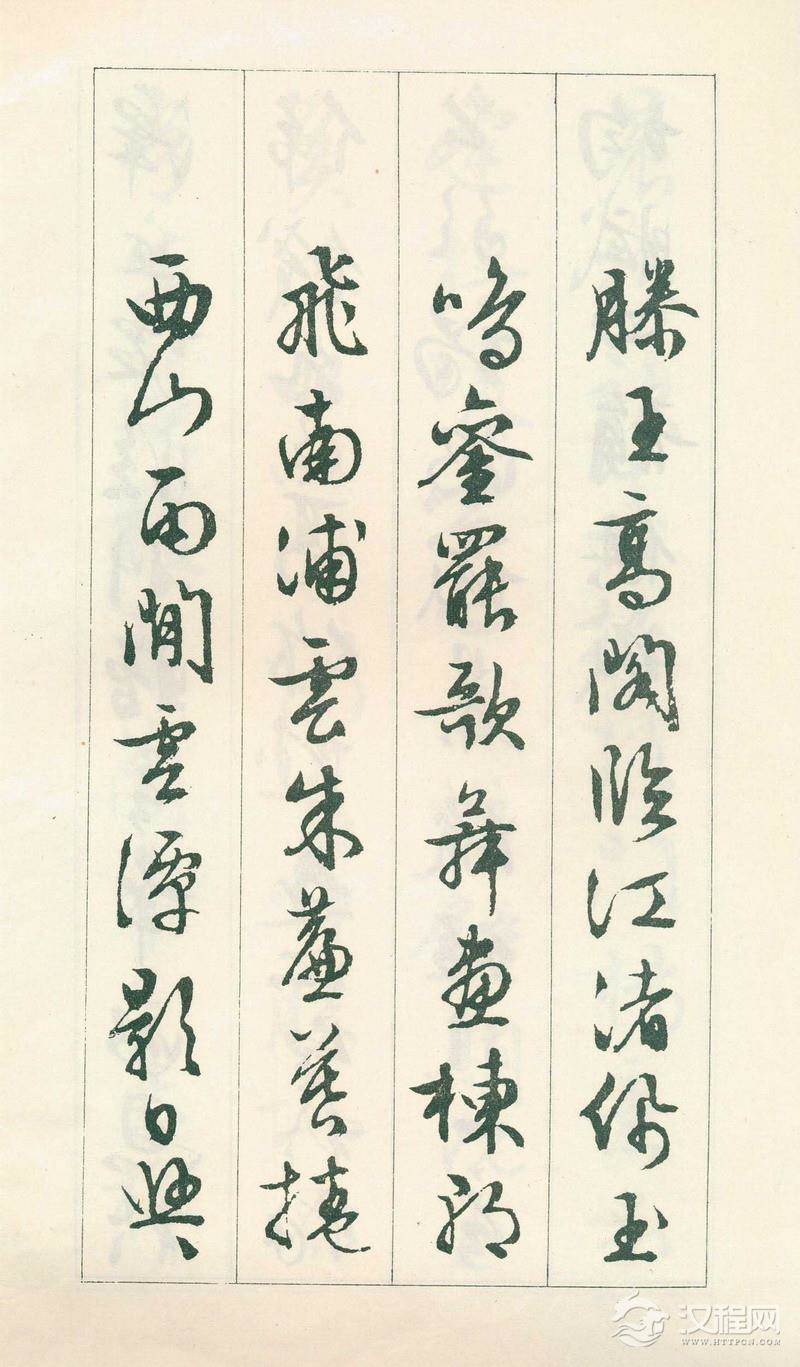 滕王高閣臨江渚佩玉
鳴鑾罷歌舞畫棟朝
飛南浦雲朱簾暮捲
西山雨閒雲潭影日悠悠
汉程网
WWW.HTTPCN.COM